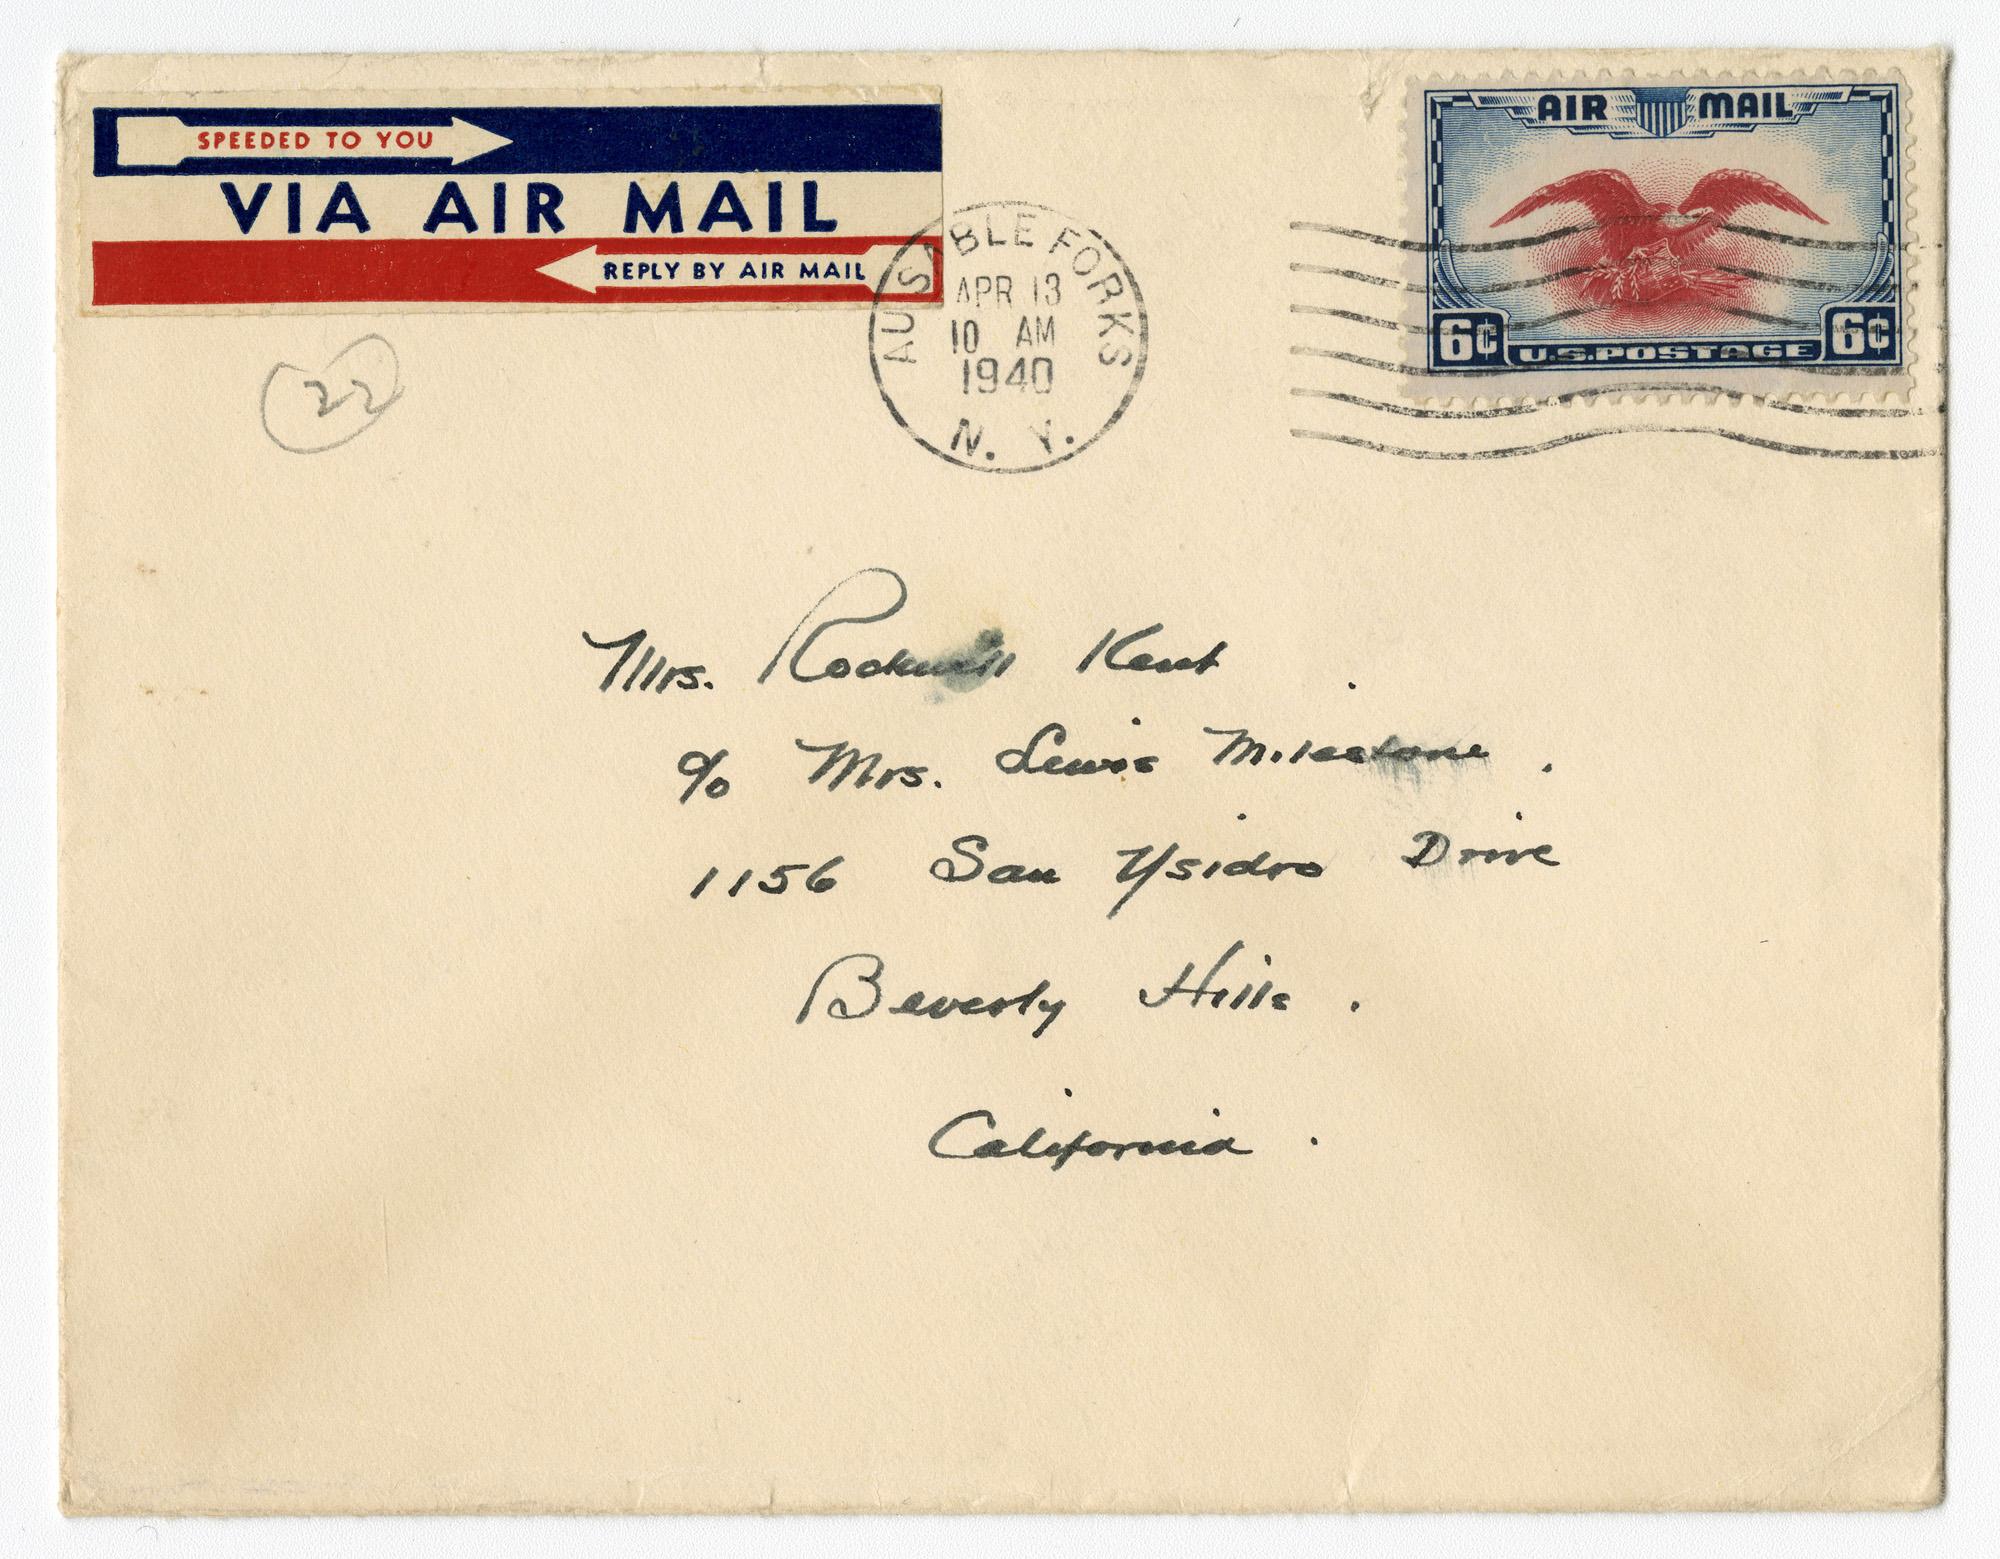 SPEEDED TO YOU
VIA AIR MAIL
REPLY BY AIR MAIL
AIR MAIL
6¢ U.S.POSTAGE 6¢
AUSABLE FORKS
APR 13
10 AM
1940
N. Y.
22
Mrs. Rockwell Kent
c/o Mrs. Lewis Milestone
1156 San Ysidro Drive
Beverly Hills
California